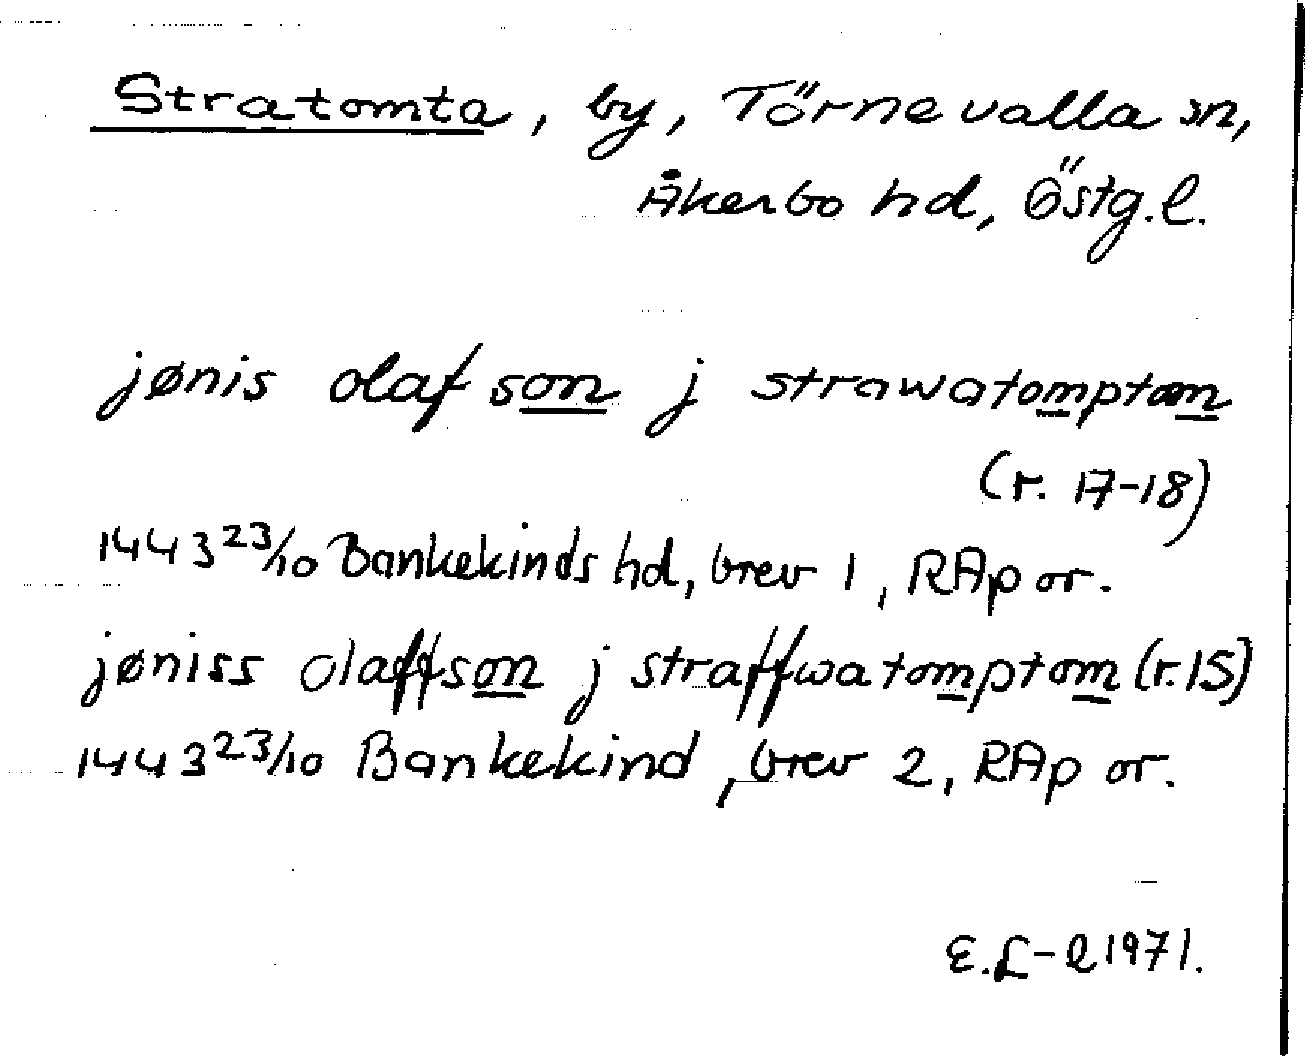 Stratomta, by, Törnevalla sn,
Åkerbo hd, Östg.l.
jønis olafson j strawatomptom
(r. 17-18)
1443 23/10 Bankekinds hd, brev 1, RAp or.
jøniss olaffson j straffwatomptom (r.15)
1443 23/10 Bankekind, brev 2, RAp or.
E.L-Q 1971.